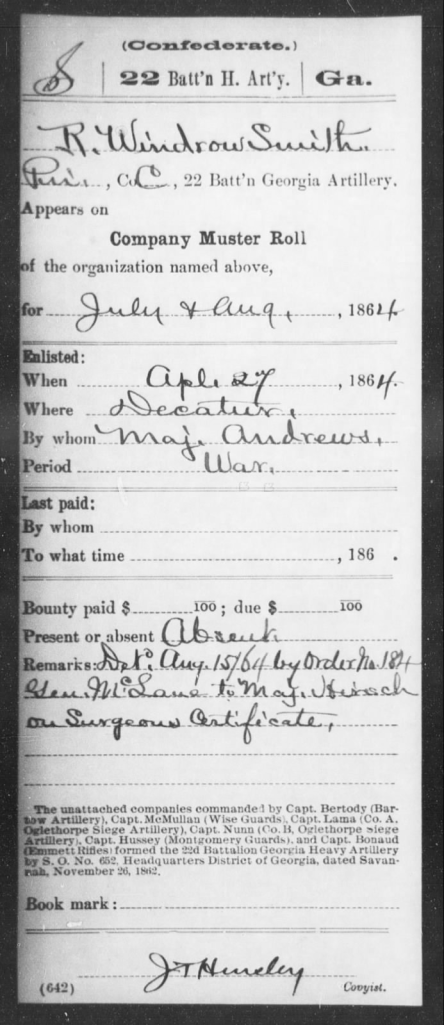 (Confederate.)
S | 22 Batt'n H. Art'y. | Ga.
R. Windrow Smith.
Pri., Co. C, 22 Batt'n Georgia Artillery.
Appears on
Company Muster Roll
of the organization named above,
for July & Aug., 1864
Enlisted:
When Apl. 27, 1864.
Where Decatur,
By whom Maj. Andrews,
Period War.
Last paid:
By whom
To what time , 186 .
Bounty paid $ 100; due $ 100
Present or absent Absent
Remarks: Det'd. Aug. 15/64 by Order No. 184
Gen. McLane to Maj. Hirsch
on Surgeons Certificate,
The unattached companies commanded by Capt. Bertody (Bar-
tow Artillery), Capt. McMullan (Wise Guards), Capt. Lama (Co. A,
Oglethorpe Siege Artillery), Capt. Nunn (Co. B, Oglethorpe siege
Artillery), Capt. Hussey (Montgomery Guards), and Capt. Bonaud
(Emmett Rifles) formed the 22d Battalion Georgia Heavy Artillery
by S. O. No. 652, Headquarters District of Georgia, dated Savan-
nah, November 26, 1862.
Book mark:
J T Hursley
(642) Copyist.